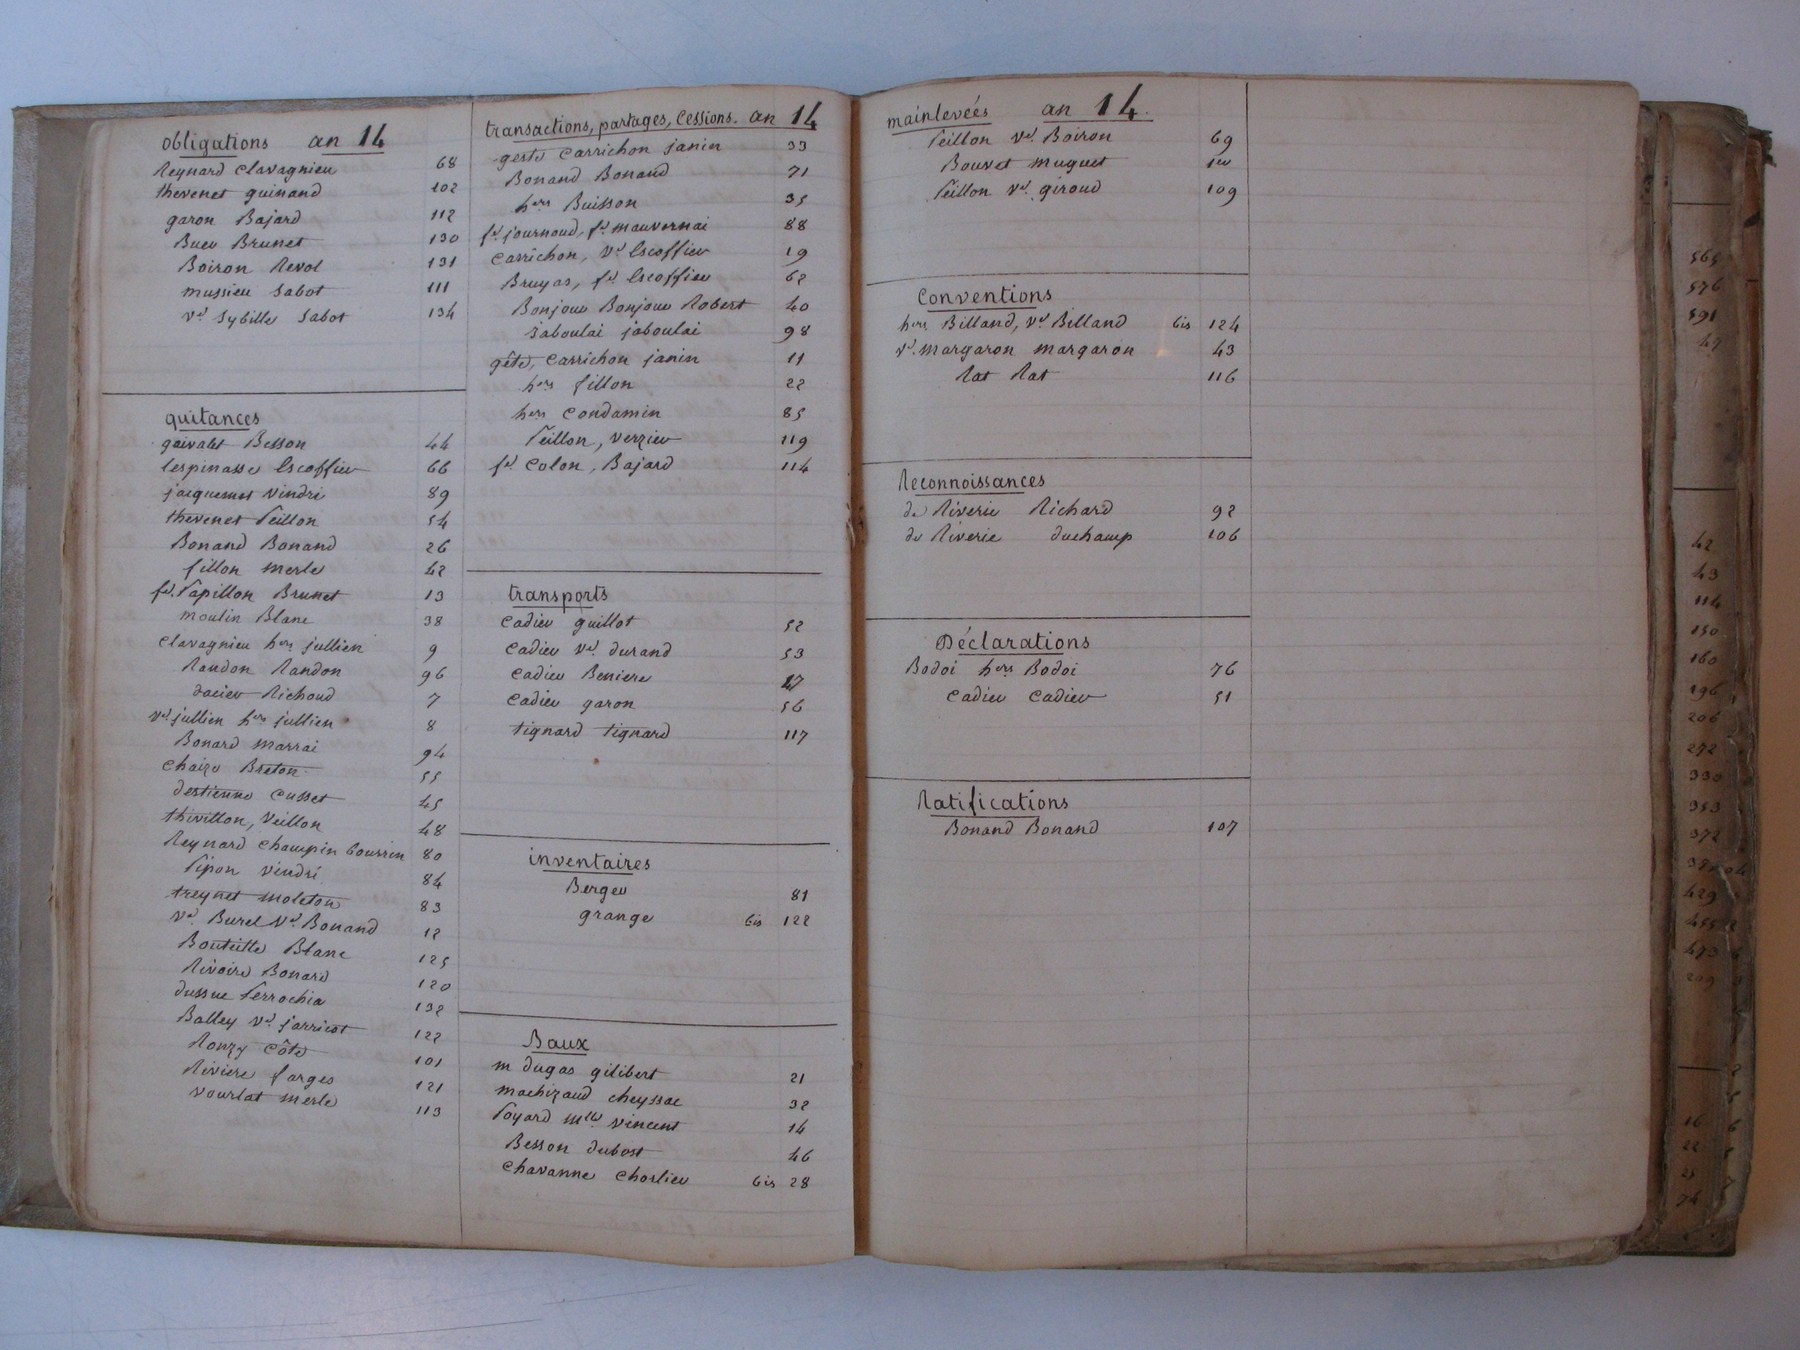 obligations an 14
Reynard Clavagnieu 68
thevenet guinand 102
garon Bajard 112
Buer Brunet 130
Boiron Revol 131
mussieu Sabot 111
vᵉ Sybille Sabot 134
quitances
gaivalet Besson 44
lespinasse Escoffier 66
jacquemot vindri 89
thevenet Peillon 54
Bonand Bonand 26
fillon merle 42
fᵉ. Papillon Brunet 13
moulin Blanc 38
Clavagnieu hers jullien 9
Randon Randon 96
dacier Richoud 7
vᵉ jullien hers jullien 8
Bonard marrai 94
Chaize Breton 55
destienne Cusset 45
thivillon, Veillon 48
Reynard Champin Coursin 80
Pipon vindri 84
treynet moleton 83
vᵉ Burel vᵉ Bonand 12
Bouteille Blanc 125
Rivoire Bonard 120
dussuc Perrochia 132
Balley vᵉ jarricot 122
Ronzy Côte 101
Riviere farges 121
vourlat merle 113
transactions, partages, Cessions. an 14
geste Carrichon janin 33
Bonand Bonand 71
hers Buisson 35
fᵉ journoud, fᵉ mauvernai 88
Carrichon, vᵉ Escoffier 19
Bruyas, fᵉ Escoffier 62
Bonjour Bonjour Robert 40
jaboulai jaboulai 98
gête, Carrichon janin 11
hers fillon 22
hers Condamin 85
Peillon, verzieu 119
fᵉ Colon, Bajard 114
transports
Cadieu guillot 52
Cadieu vᵉ. durand 53
Cadieu Beniere 17
Cadieu garon 56
tignard tignard 117
inventaires
Berger 81
grange bis 122
Baux
m dugas gilibert 21
machizaud cheyssac 32
Poyard mˡˡᵉ vincent 14
Besson dubost 46
Chavanne Chorlieu bis 28
mainlevées an 14.
Peillon vᵉ Boiron 69
Bouvet muguet
Peillon vᵉ. giroud 109
Conventions
hers Billand, vᵉ Billand bis 124
vᵉ. margaron margaron 43
Rat Rat 116
Reconnoissances
de Riverie Richard 92
de Riverie duchamp 106
Déclarations
Bodoi hers Bodoi 76
Cadieu Cadieu 51
Ratifications
Bonand Bonand 107
565
576
591
42
43
114
150
160
196
206
272
330
353
372
429
455
473
209
16
22
25
74